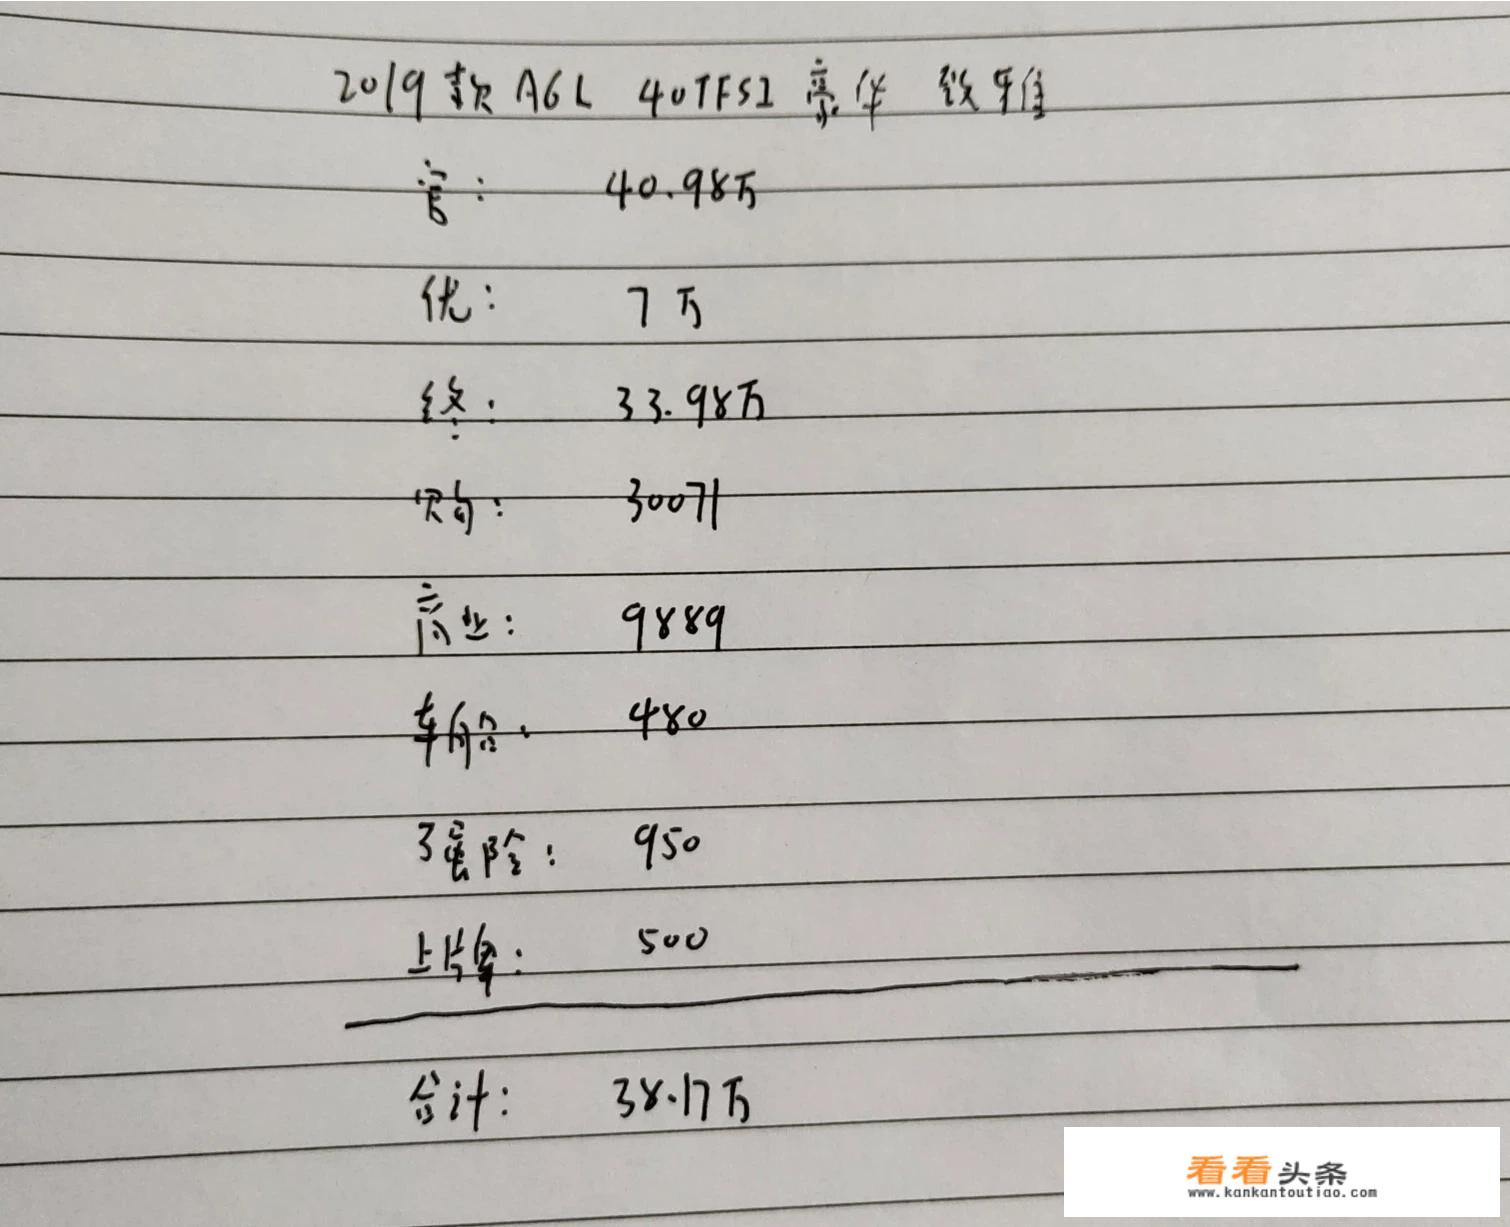 2019款 A6L 40TFSI 豪华 致雅
官: 40.98万
优: 7万
终: 33.98万
购: 30071
商业: 9889
车船: 480
交强险: 950
上牌: 500
合计: 38.17万
看看头条
www.kankantoutiao.com